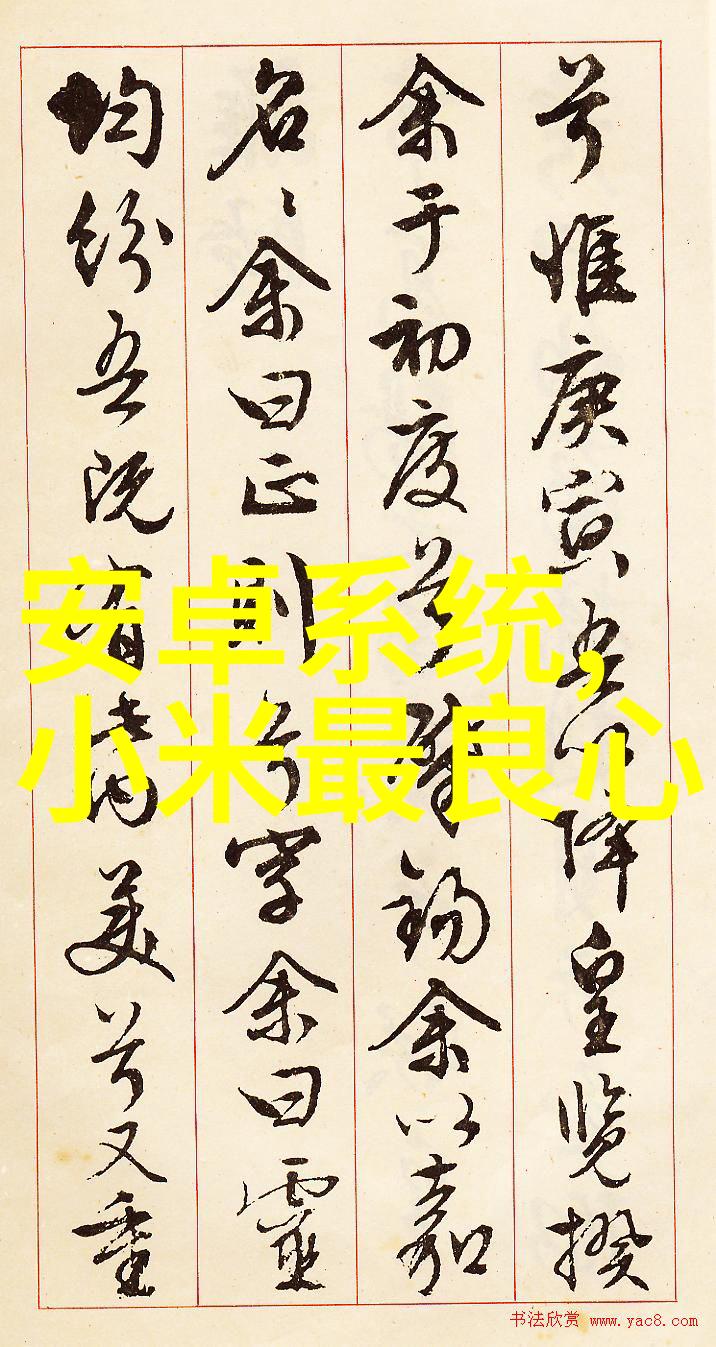 兮惟庚寅吾以降皇覽揆
余于初度兮肇錫余以嘉
名〻余曰正則兮字余曰靈
均紛吾既有此內美兮又重
安卓系统,
小米最良心
书法欣赏 www.yac8.com